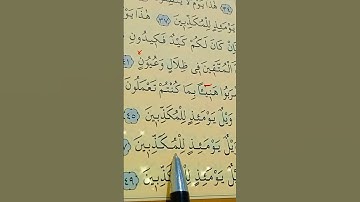 هٰذَا يَوْمُ لَا
يَوْمَئِذٍ لِلْمُكَذِّبِينَ ﴿٣٧﴾ هٰذَا يَوْمُ
كَانَ لَكُمْ كَيْدٌ فَكِيدُونِ
الْمُتَّقِينَ فِي ظِلَالٍ وَعُيُونٍ ﴿٤١﴾
هَنِيئًا بِمَا كُنْتُمْ تَعْمَلُونَ
وَيْلٌ يَوْمَئِذٍ لِلْمُكَذِّبِينَ ﴿٤٥﴾
يَوْمَئِذٍ لِلْمُكَذِّبِينَ
يَوْمَئِذٍ لِلْمُكَذِّبِينَ ﴿٤٩﴾